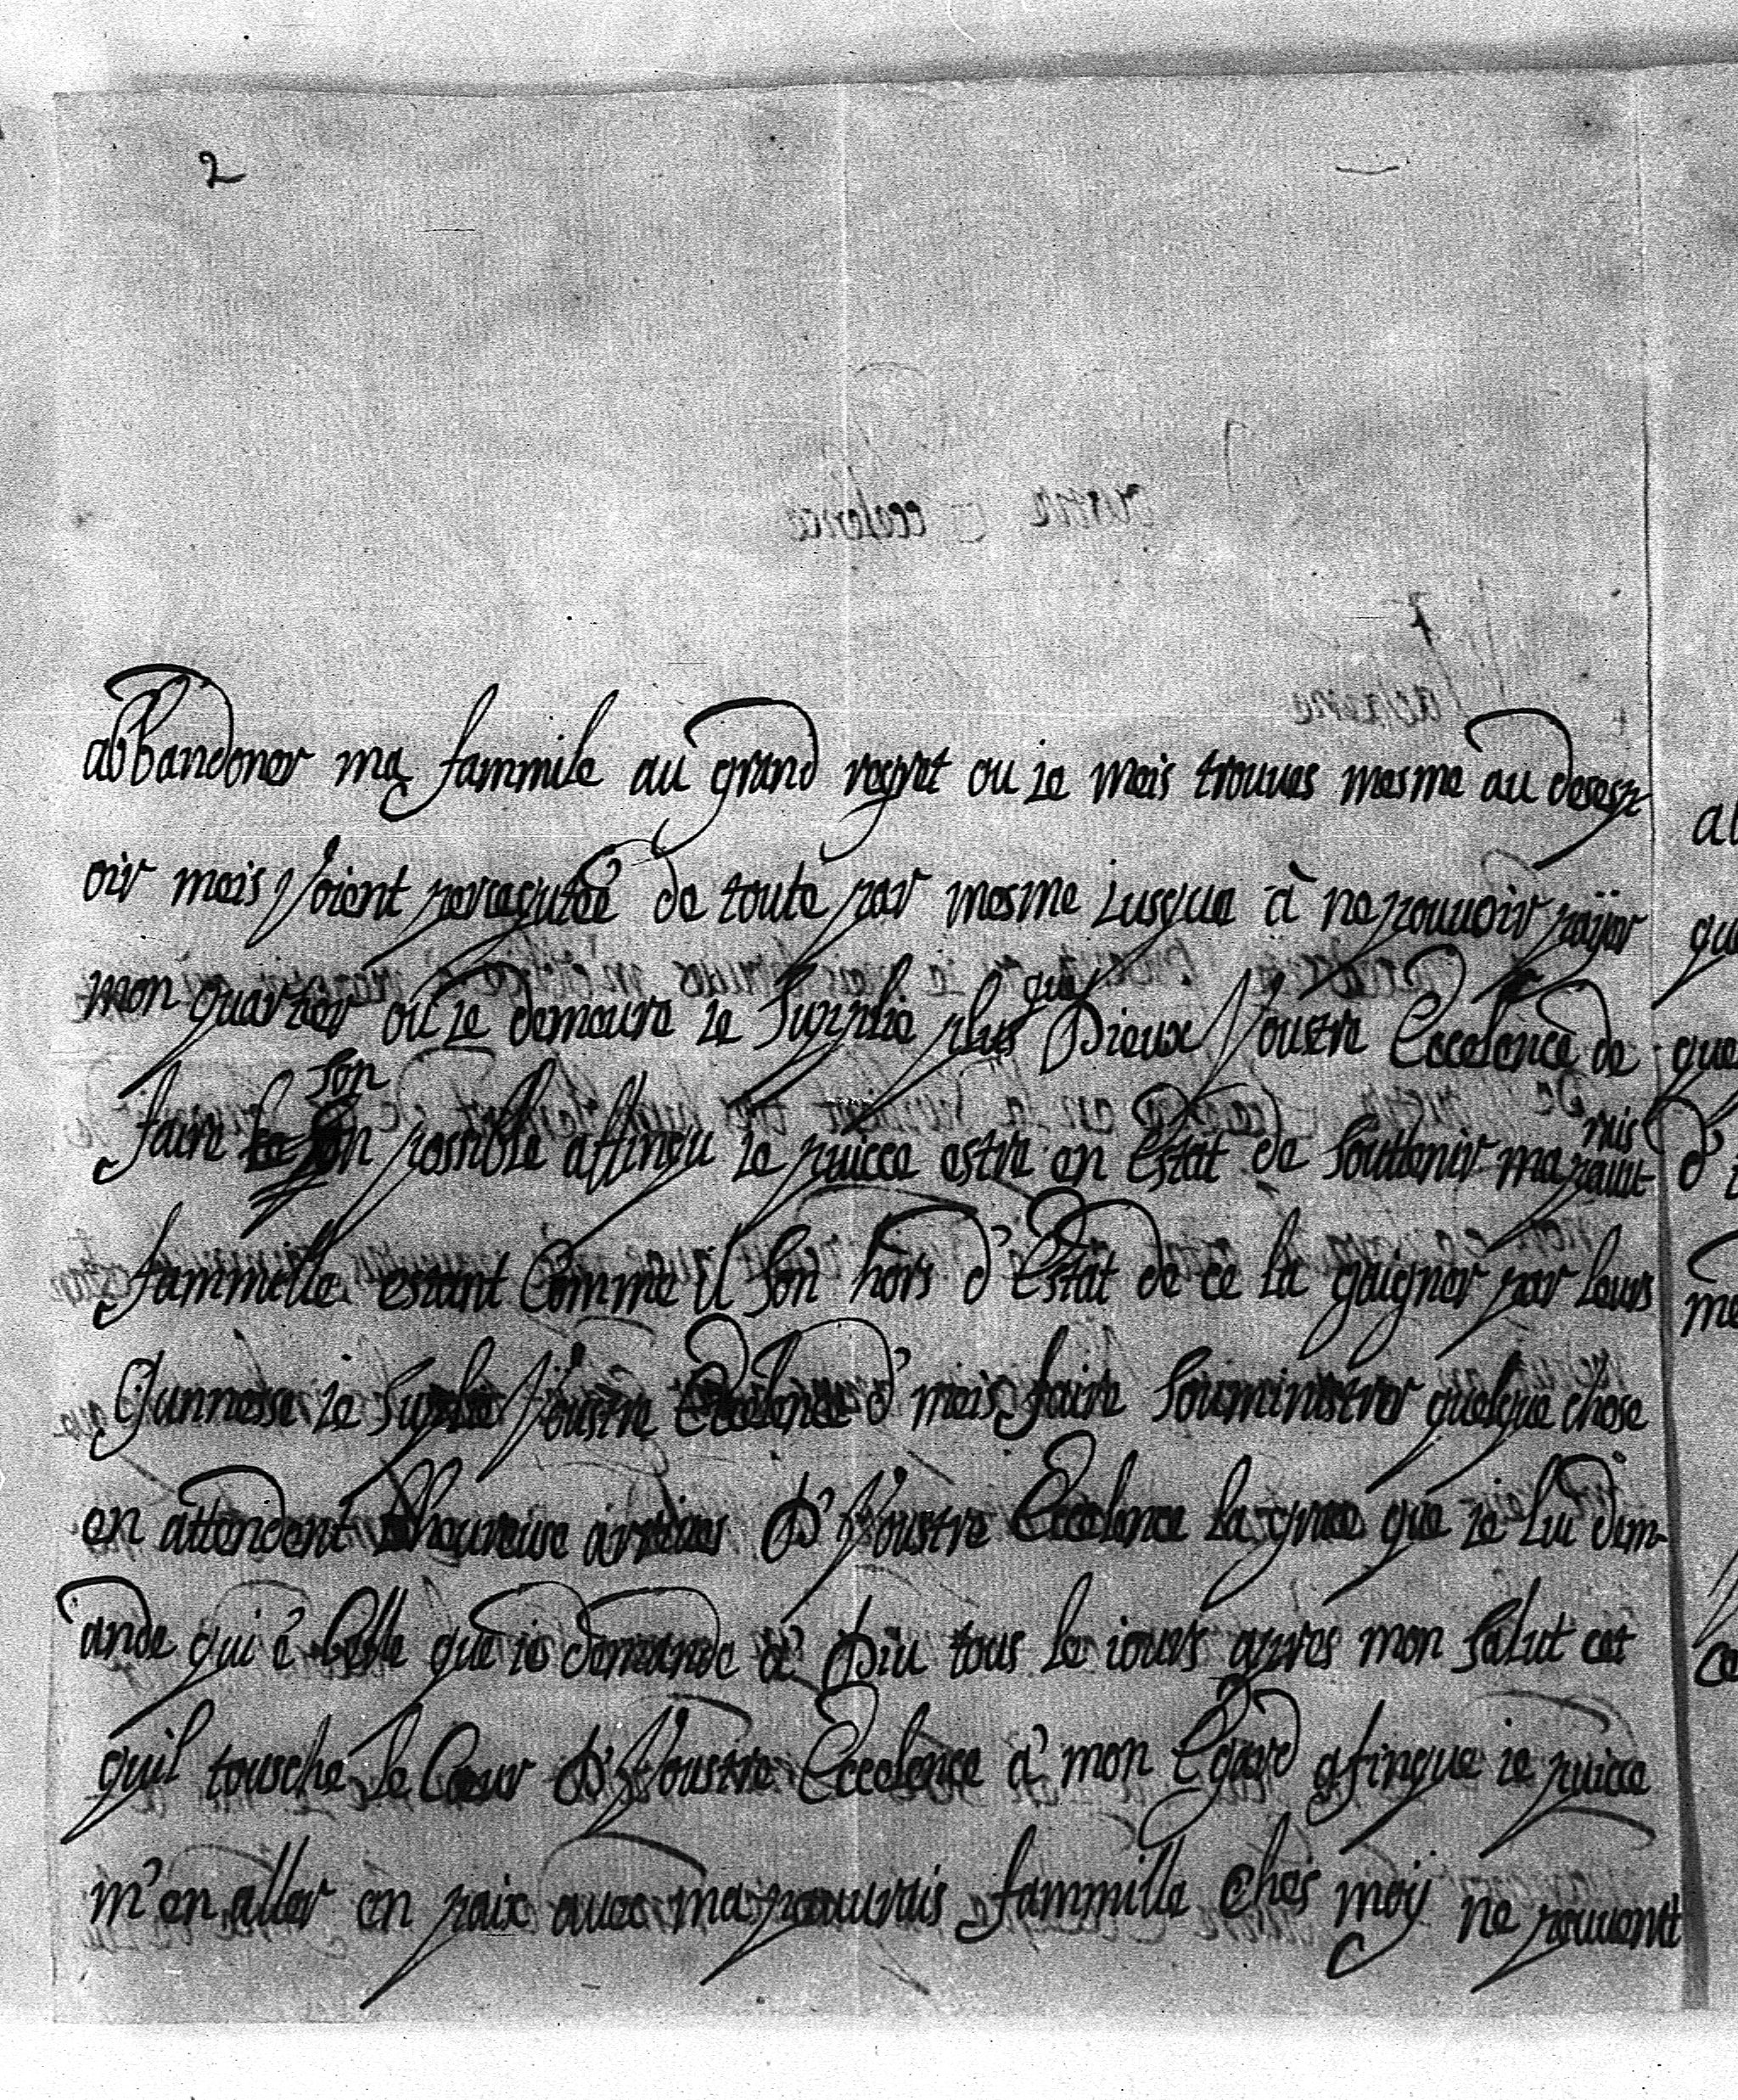 2
abbandoner ma fammile au grand regret ou ie meis trouues mesme au desesp-
oir meis Voient persequtéé de toute par mesme iusque à ne pouuoir païjer
mon quartier ou ie demeure ie Supplie plus que Dieux Voustre Eccelence de
faire son possible affinqu ie puicce estre en Estat de Souttenir ma pauu-
ruis
fammille estant Comme il Son hors d'Estat de ce la gaigner par leurs
Gunnesse ie Suplie Voustre Eccelence d' meis faire Souministrer quelque chose
en attendent heureuse D' Voustre Eccelence la grace que ie lui dem-
ande qui é Celle que ie demande a' Diu tous le iours apres mon Salut cet
quil tousche le Coeur D' Voustre Eccelence a' mon Egard afinque ie puicce
m'en aller en paix auec ma pauuruis fammille Ches moij ne pouuentt